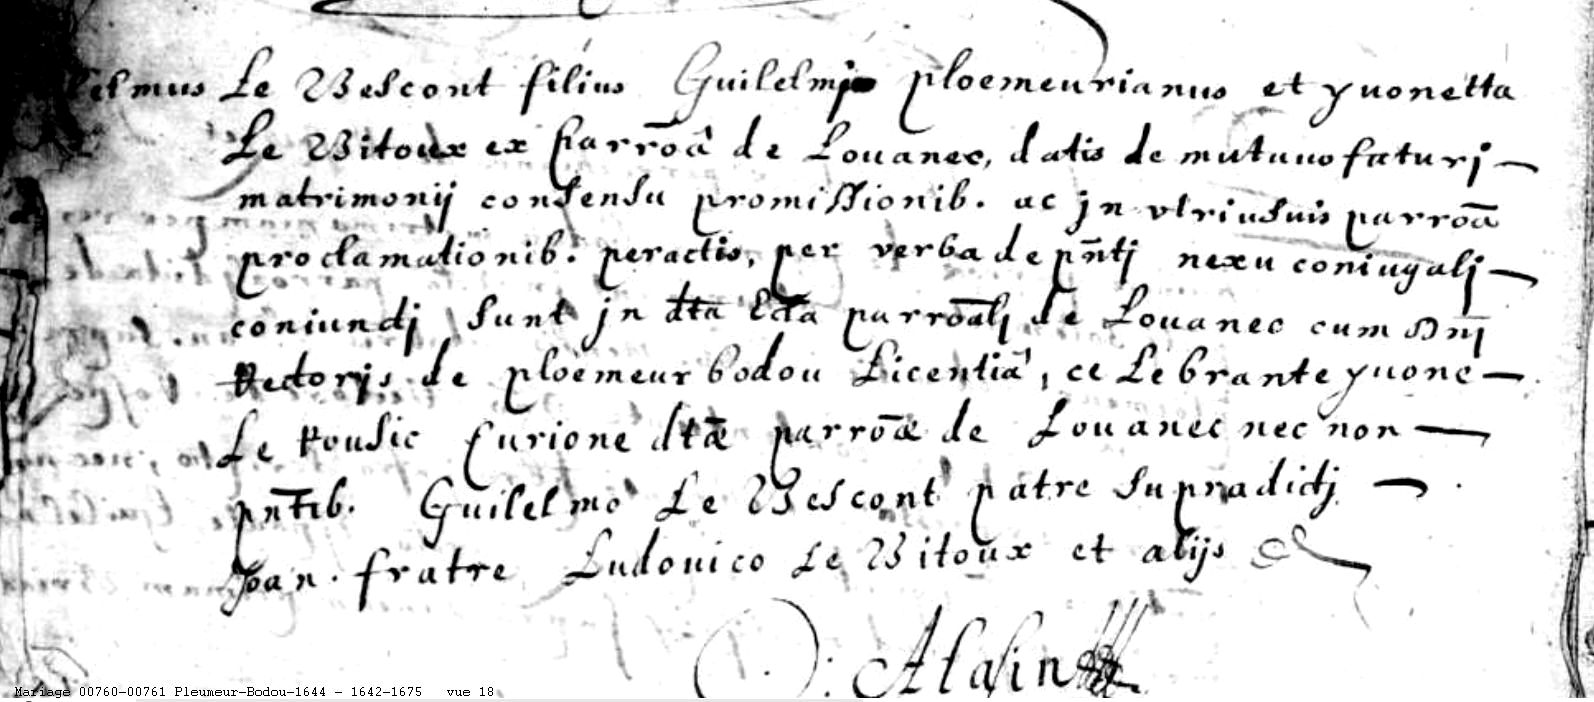 Le Vescont filius Guilelmj ploemeurianus et yuonetta
Le Vitoux ex parrōā de Louanec, datis de mutuuo faturj
matrimonij consensu promissionib. ac jn vtriusuis parroā
proclamationib. peractis, per verba de pn̄tj nexu coniugalj
coniunctj sunt jn dta Eccta parroālj de Louanec cum Dnj
Rectoris de ploemeur bodou Licentiâ, ce Lebrante yuone
Le Rousic Curione dtæ parroæ de Louanec nec non
pnt̄ib. Guilelmo Le Vescont patre supradictj
Joan. fratre Ludouico Le Vitoux et alijs
Alain
Mariage 00760-00761 Pleumeur-Bodou-1644 - 1642-1675 vue 18